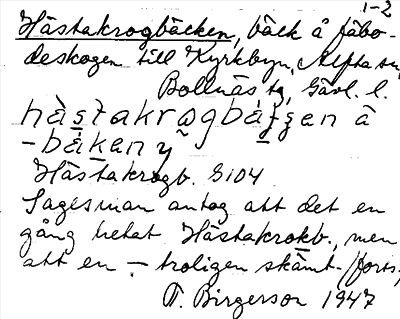 1-2
Hästakrogbäcken, bäck å fäbo-
deskogen till Kyrkbyn, Alfta sn,
Bollnäs tg, Gävl. l.
hàstakrogbä́ʒʒen å
-bäken y
Hästakrogb. G104
Sagesman antog att det en
gång hetat Hästakrokb., men
att en – troligen skämt- /forts.
T. Birgerson 1947